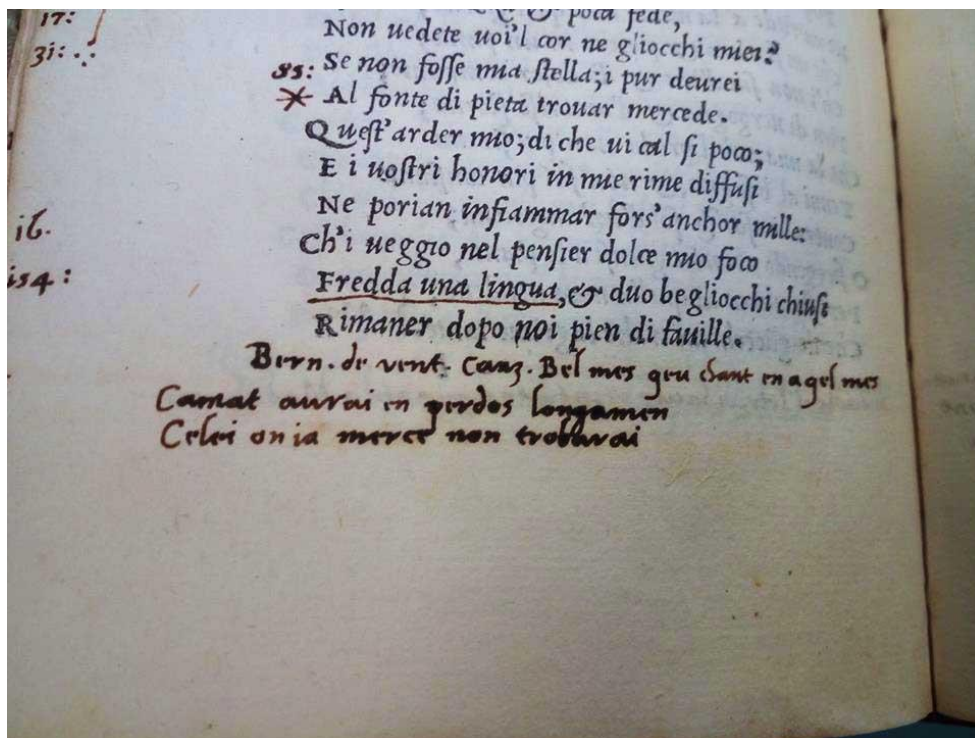 17:
poca fede,
31: .:
Non uedete uoi'l cor ne gliocchi miei?
85: Se non fosse mia stella; i pur deurei
Al fonte di pieta trouar mercede.
Quest'arder mio; di che ui cal si poco;
E i uostri honori in mie rime diffusi
Ne porian infiammar fors'anchor mille:
16.
Ch'i ueggio nel pensier dolce mio foco
154:
Fredda una lingua, & duo begliocchi chiusi
Rimaner dopo noi pien di fauille.
Bern. de vent. Canz. Bel mes qeu chant en aqel mes
Cantat aurai en perdos longamen
Celei on ia merce non trobarai